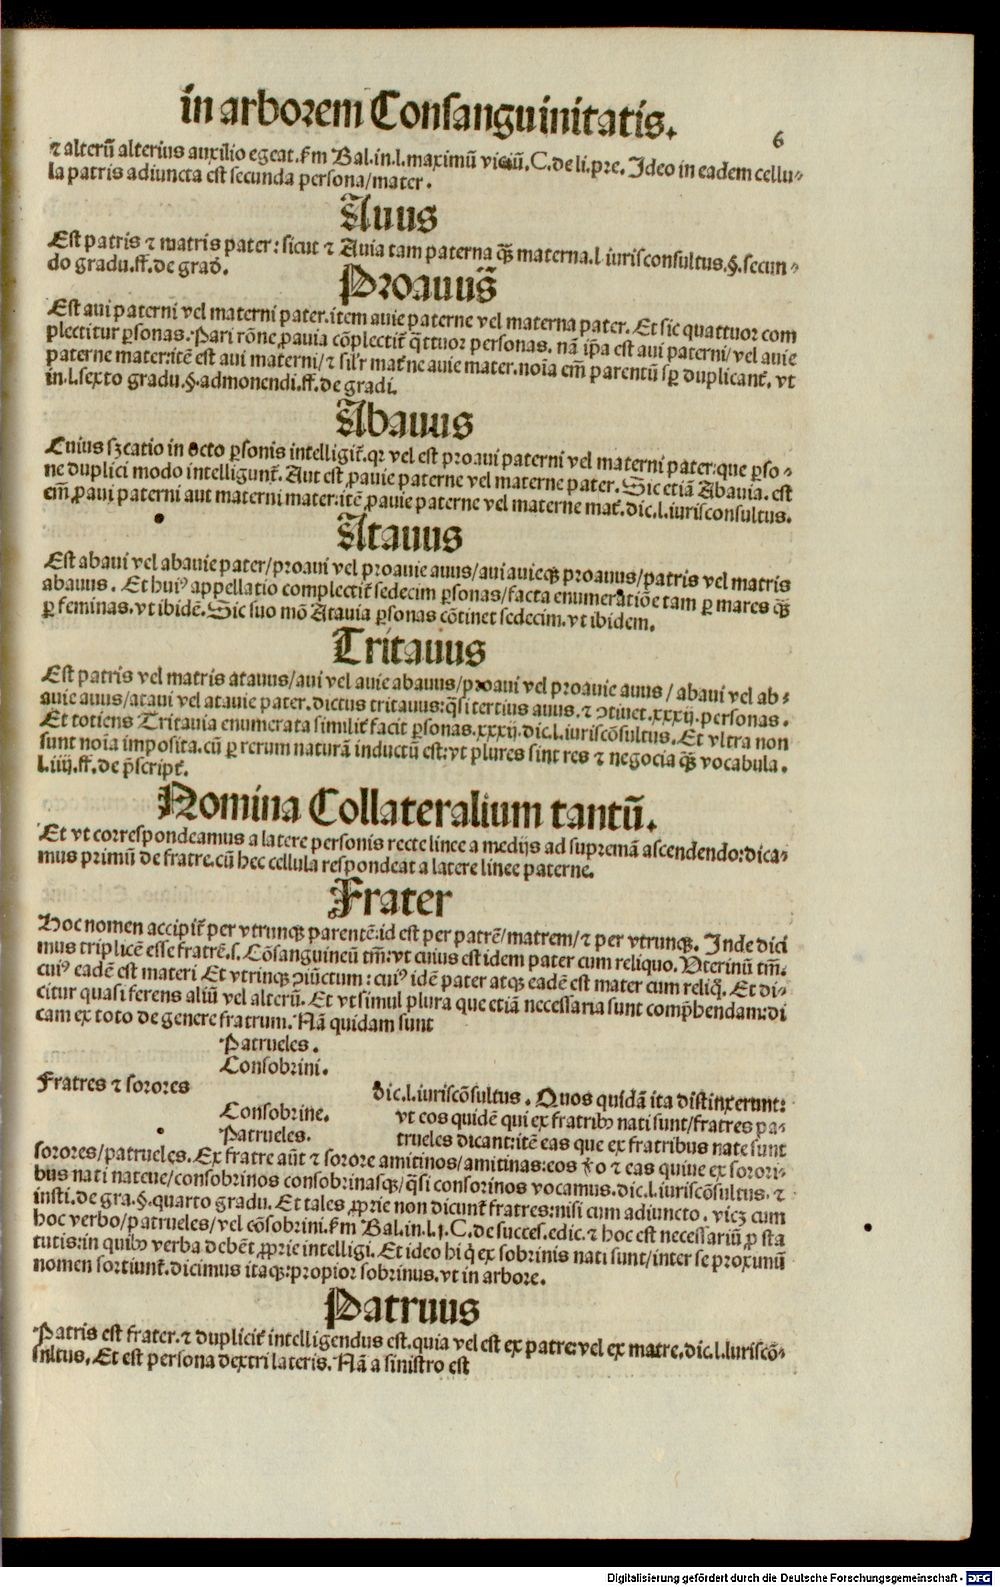 in arborem Consanguinitatis.
6
⁊ alterũ alterius auxilio egeat. k̃m Bal. in. l. maximũ viciũ. C. de li. pre. Ideo in eadem cellu⸗
la patris adiuncta est secunda persona/mater.
Auus
Est patris ⁊ matris pater: sicut ⁊ Auia tam paterna q̃ꝫ materna. l iurisconsultus. §. secun⸗
do gradu. ff. de grad̃.
Proauus
Est aui paterni vel materni pater. item auie paterne vel materna pater. Et sic quattuor com
plectitur ꝑsonas. Pari rõne ꝓauia cõplectit̃ q̃ttuor personas. nã ip̃a est aui paterni/vel auie
paterne mater: itẽ est aui materni/⁊ sil'r mat̃ne auie mater. noĩa em̃ parentũ sꝑ duplicant̃. vt
in. l. sexto gradu. §. admonendi. ff. de gradi.
Abauus
Cuius sꝫcatio in octo ꝑsonis intelligit̃. qꝛ vel est proaui paterni vel materni pater: que ꝑso⸗
ne duplici modo intelligunt̃. Aut est ꝓauie paterne vel materne pater. Sic etiã Abauia. est
em̃ ꝓaui paterni aut materni mater: itẽ ꝓauie paterne vel materne mat̃. dic. l. iurisconsultus.
Atauus
Est abaui vel abauie pater/proaui vel proauie auus/aui auieqꝫ proauus/patris vel matris
abauus. Et huiꝰ appellatio complectit̃ sedecim ꝑsonas/facta enumeratiõe tam ꝑ mares q̃ꝫ
ꝑ feminas. vt ibidẽ. Sic suo mõ Atauia ꝑsonas cõtinet sedecim. vt ibidem.
Tritauus
Est patris vel matris atauus/aui vel auie abauus/proaui vel proauie auus/abaui vel ab⸗
auie auus/ataui vel atauie pater. dictus tritauus: q̃si tertius auus. ⁊ ↄtinet. xxxij. personas.
Et totiens Tritauia enumerata similit̃ facit ꝑsonas. xxxij. dic. l. iuriscõsultus. Et vltra non
sunt noĩa imposita. cũ ꝑ rerum naturã inductũ est: vt plures sint res ⁊ negocia q̃ꝫ vocabula.
l. iiij. ff. de p̃script̃.
Nomina Collateralium tantũ.
Et vt correspondeamus a latere personis recte linee a medijs ad supremã ascendendo: dica⸗
mus primũ de fratre. cũ hec cellula respondeat a latere linee paterne.
Frater
Hoc nomen accipit̃ per vtrunqꝫ parentẽ: id est per patrẽ/matrem/⁊ per vtrunqꝫ. Inde dici
mus triplicẽ esse fratrẽ. s. Cõsanguineũ tm̃: vt cuius est idem pater cum reliquo. Vterinũ tm̃.
cuiꝰ eadẽ est materi Et vtrinqꝫ ↄiũctum: cuiꝰ idẽ pater atqꝫ eadẽ est mater cum reliq̃. Et di⸗
citur quasi ferens aliũ vel alterũ. Et vt simul plura que etiã necessaria sunt comp̃hendam: di
cam ex toto de genere fratrum. Nã quidam sunt
Patrueles.
Consobrini.
Fratres ⁊ sorores
dic. l. iuriscõsultus. Quos quidã ita distinxerunt:
Consobrine. vt eos quidẽ qui ex fratribꝰ nati sunt/fratres pa⸗
Patrueles. trueles dicant: itẽ eas que ex fratribus nate sunt
sorores/patrueles. Ex fratre aũt ⁊ sorore amitinos/amitinas: eos ṽo ⁊ eas quiue ex sorori⸗
bus nati nateue/consobrinos consobrinasqꝫ/q̃si consorinos vocamus. dic. l. iuriscõsultus. ⁊
insti. de gra. §. quarto gradu. Et tales ꝓprie non dicunt̃ fratres: nisi cum adiuncto. vicꝫ cum
hoc verbo/patrueles/vel cõsobrini. k̃m Bal. in. l. j. C. de succes. edic. ⁊ hoc est necessariũ ꝓ sta
tutis: in quibꝰ verba debẽt ꝓprie intelligi. Et ideo hi q̃ ex sobrinis nati sunt/inter se proximũ
nomen sortiunt̃. dicimus itaqꝫ: propior sobrinus. vt in arbore.
Patruus
Patris est frater. ⁊ duplicit̃ intelligendus est. quia vel est ex patre: vel ex matre. dic. l. Iuriscõ⸗
sultus. Et est persona dextri lateris. Nã a sinistro est
Digitalisierung gefördert durch die Deutsche Forschungsgemeinschaft - DFG